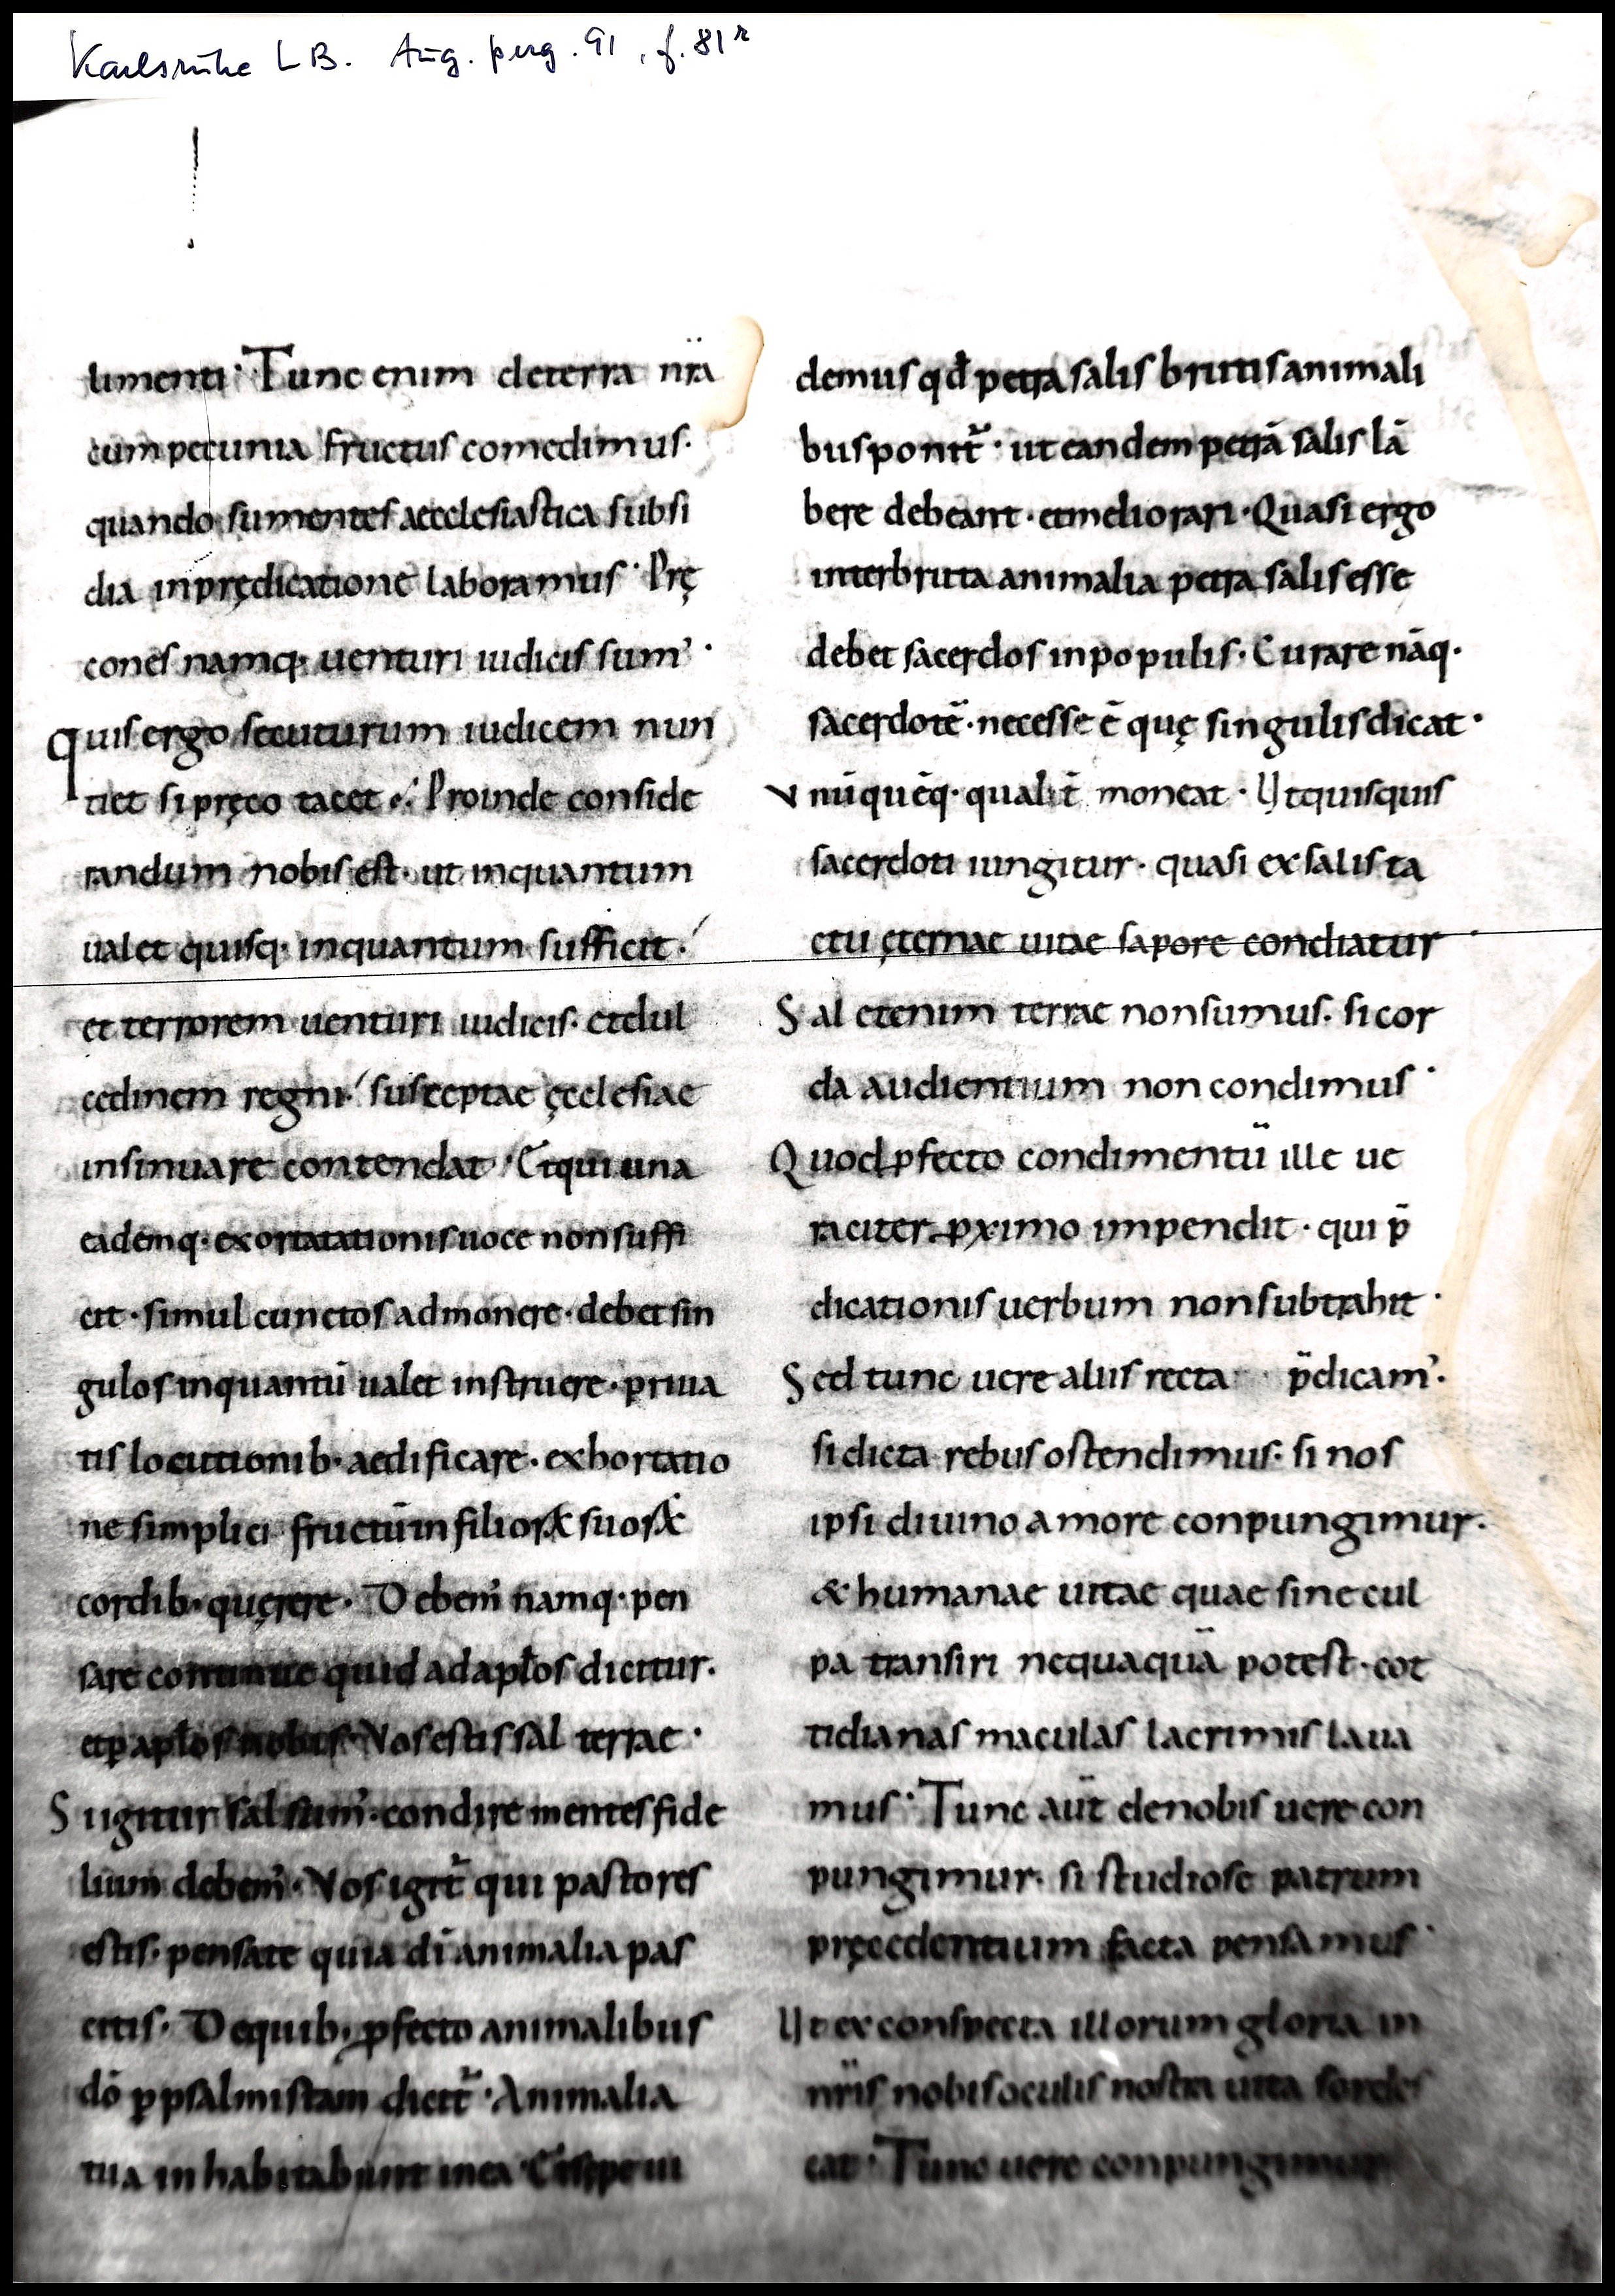 Karlsruhe LB. Aug. perg. 91, f. 81r
limenti· Tunc enim deterra nr̄a
cumpecunia fructus comedimus·
quando sumentes aecclesiastica subsi
dia inprędicatione laboramus· Prę
cones namq· uenturi iudicis sum᾽·
quis ergo secuturum iudicem nun
tiet si pręco tacet·:· Proinde conside
randum nobis est· ut inquantum
ualet quisq· inquantum sufficit·
et terrorem uenturi iudicis· etdul
cedinem regni· susceptae ęcclesiae
insinuare contendat· Etqui una
eademq· exortationis uoce non suffi
cit· simul cunctos admonere· debet sin
gulos inquantū ualet instruere· priua
tis locutionib· aedificare· exhortatio
ne simplici fructū in filioꝝ suoꝝ
cordib· quęrere· Debem᾽ namq· pen
sare continue quid ad aptos dicitur·
etꝑ aptos nobis· Vos estis sal terrae·
Si igitur sal sum᾽· condire mentes fide
lium debem᾽· Vos igit̄ qui pastores
estis· pensate quia dī animalia pas
citis· De quib· ꝓfecto animalibus
dō ꝑ psalmistam dicit̄· Animalia
tua inhabitabunt in ea·
demus qđ petra salis brutis animali
bus ponit̄· ut eandem petrā salis lā
bere debeant· etmeliorari· Quasi ergo
inter bruta animalia petra salis esse
debet sacerdos inpopulis· Curare nāq·
sacerdotē· necesse ē quę singulis dicat·
vnūquēq· qualit̄ moneat· Ut quisquis
sacerdoti iungitur· quasi ex salis ta
ctu ęternae uitae sapore condiatur·
Sal etenim terrae non sumus· si cor
da audientium non condimus·
Quod ꝓfecto condimentū ille ue
raciter ꝓximo impendit· qui p̄
dicationis uerbum non subtrahit·
Sed tunc uere aliis recta p̄dicam᾽·
si dicta rebus ostendimus· si nos
ipsi diuino amore conpungimur·
& humanae uitae quae sine cul
pa transiri nequaquā potest· cot
tidianas maculas lacrimis laua
mus· Tunc aūt denobis uere con
pungimur· si studiose patrum
pręcedentium facta pensamus·
Ut ex conspecta illorum gloria in
nr̄is nobis oculis nostra uita sordes
cat· Tunc uere conpungimur